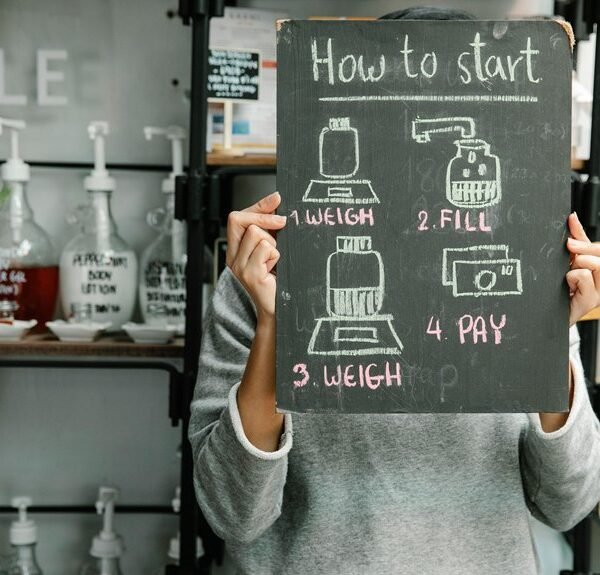 LE
How to start
1 WEIGH
2. FILL
3. WEIGH
10
4. PAY
PEPPERMINT
BODY
LOTION